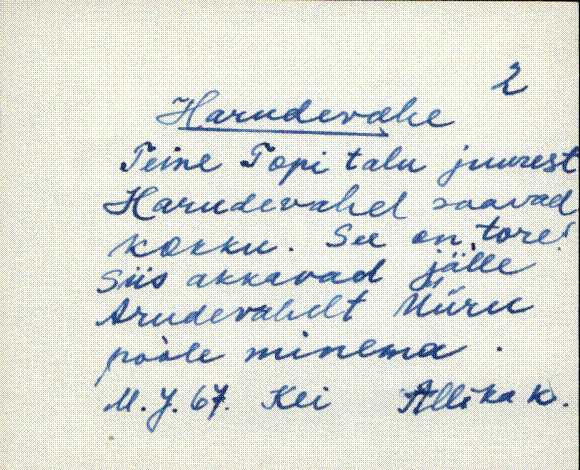 2
Harudevahe
Teine Topi talu juurest
Harudevahel saavad
kokku. See on, tore!
Siis akkavad jälle
Arudevahelt Müru
poole minema.
M. J. 67. Kei Allika k.